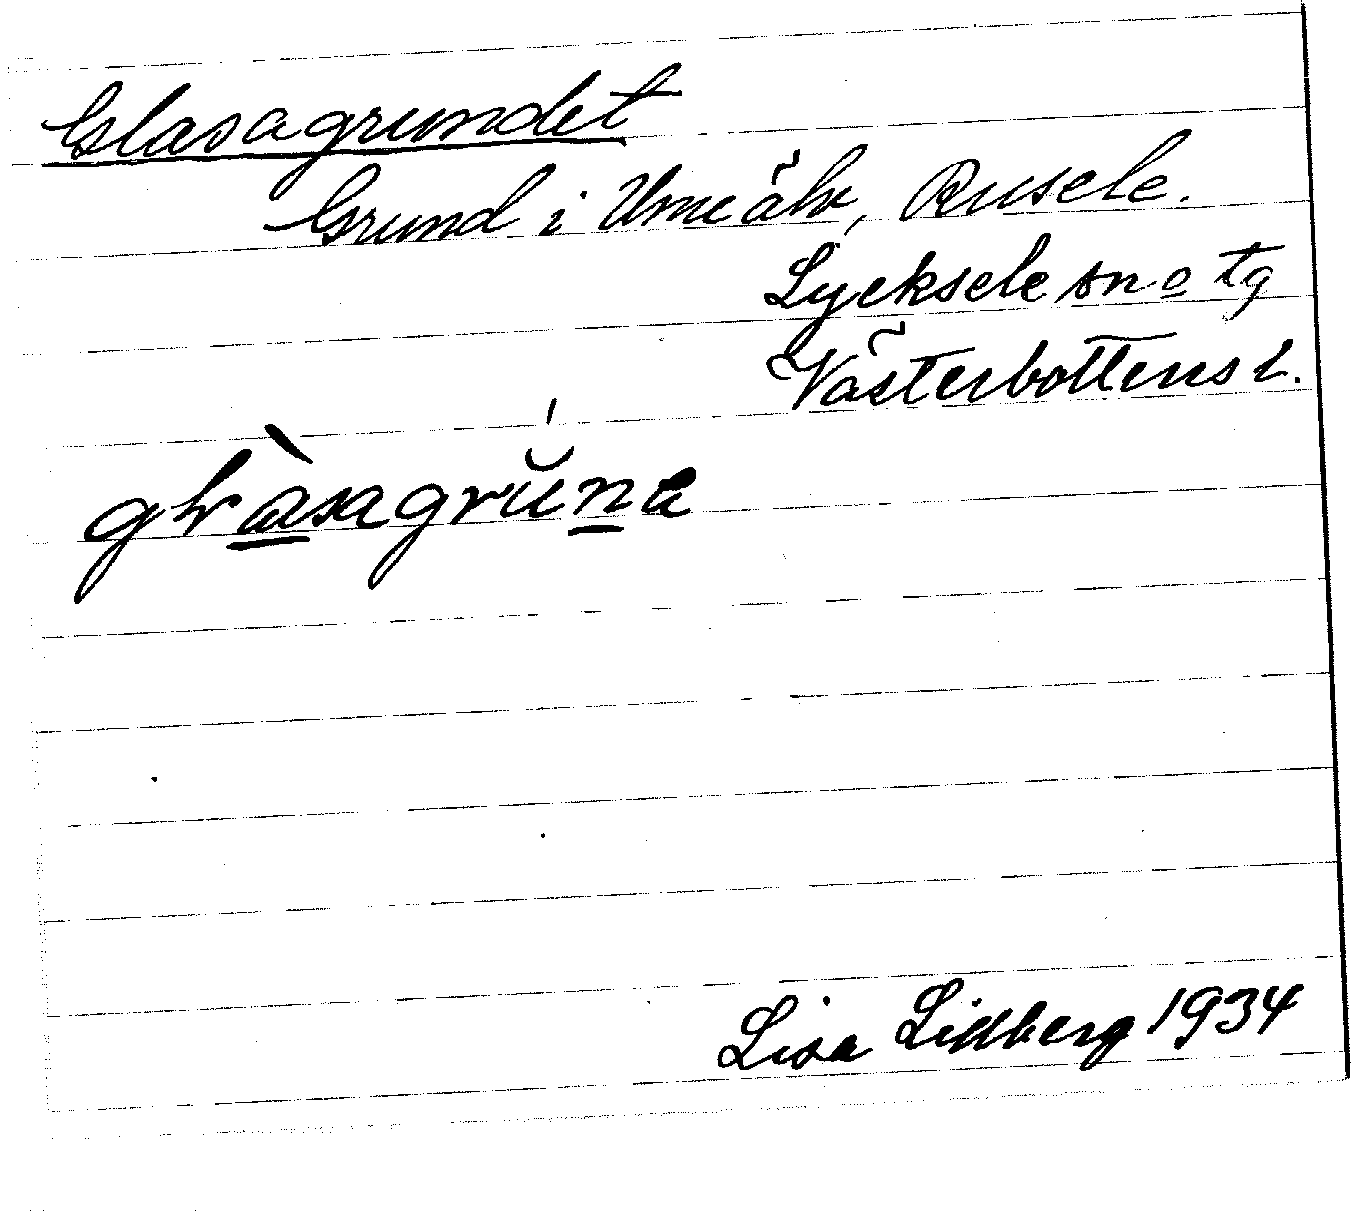 Glasagrundet
Grund i Umeälv, Rusele.
Lycksele sn o tg
Västerbottens l.
Lisa Lidberg 1934